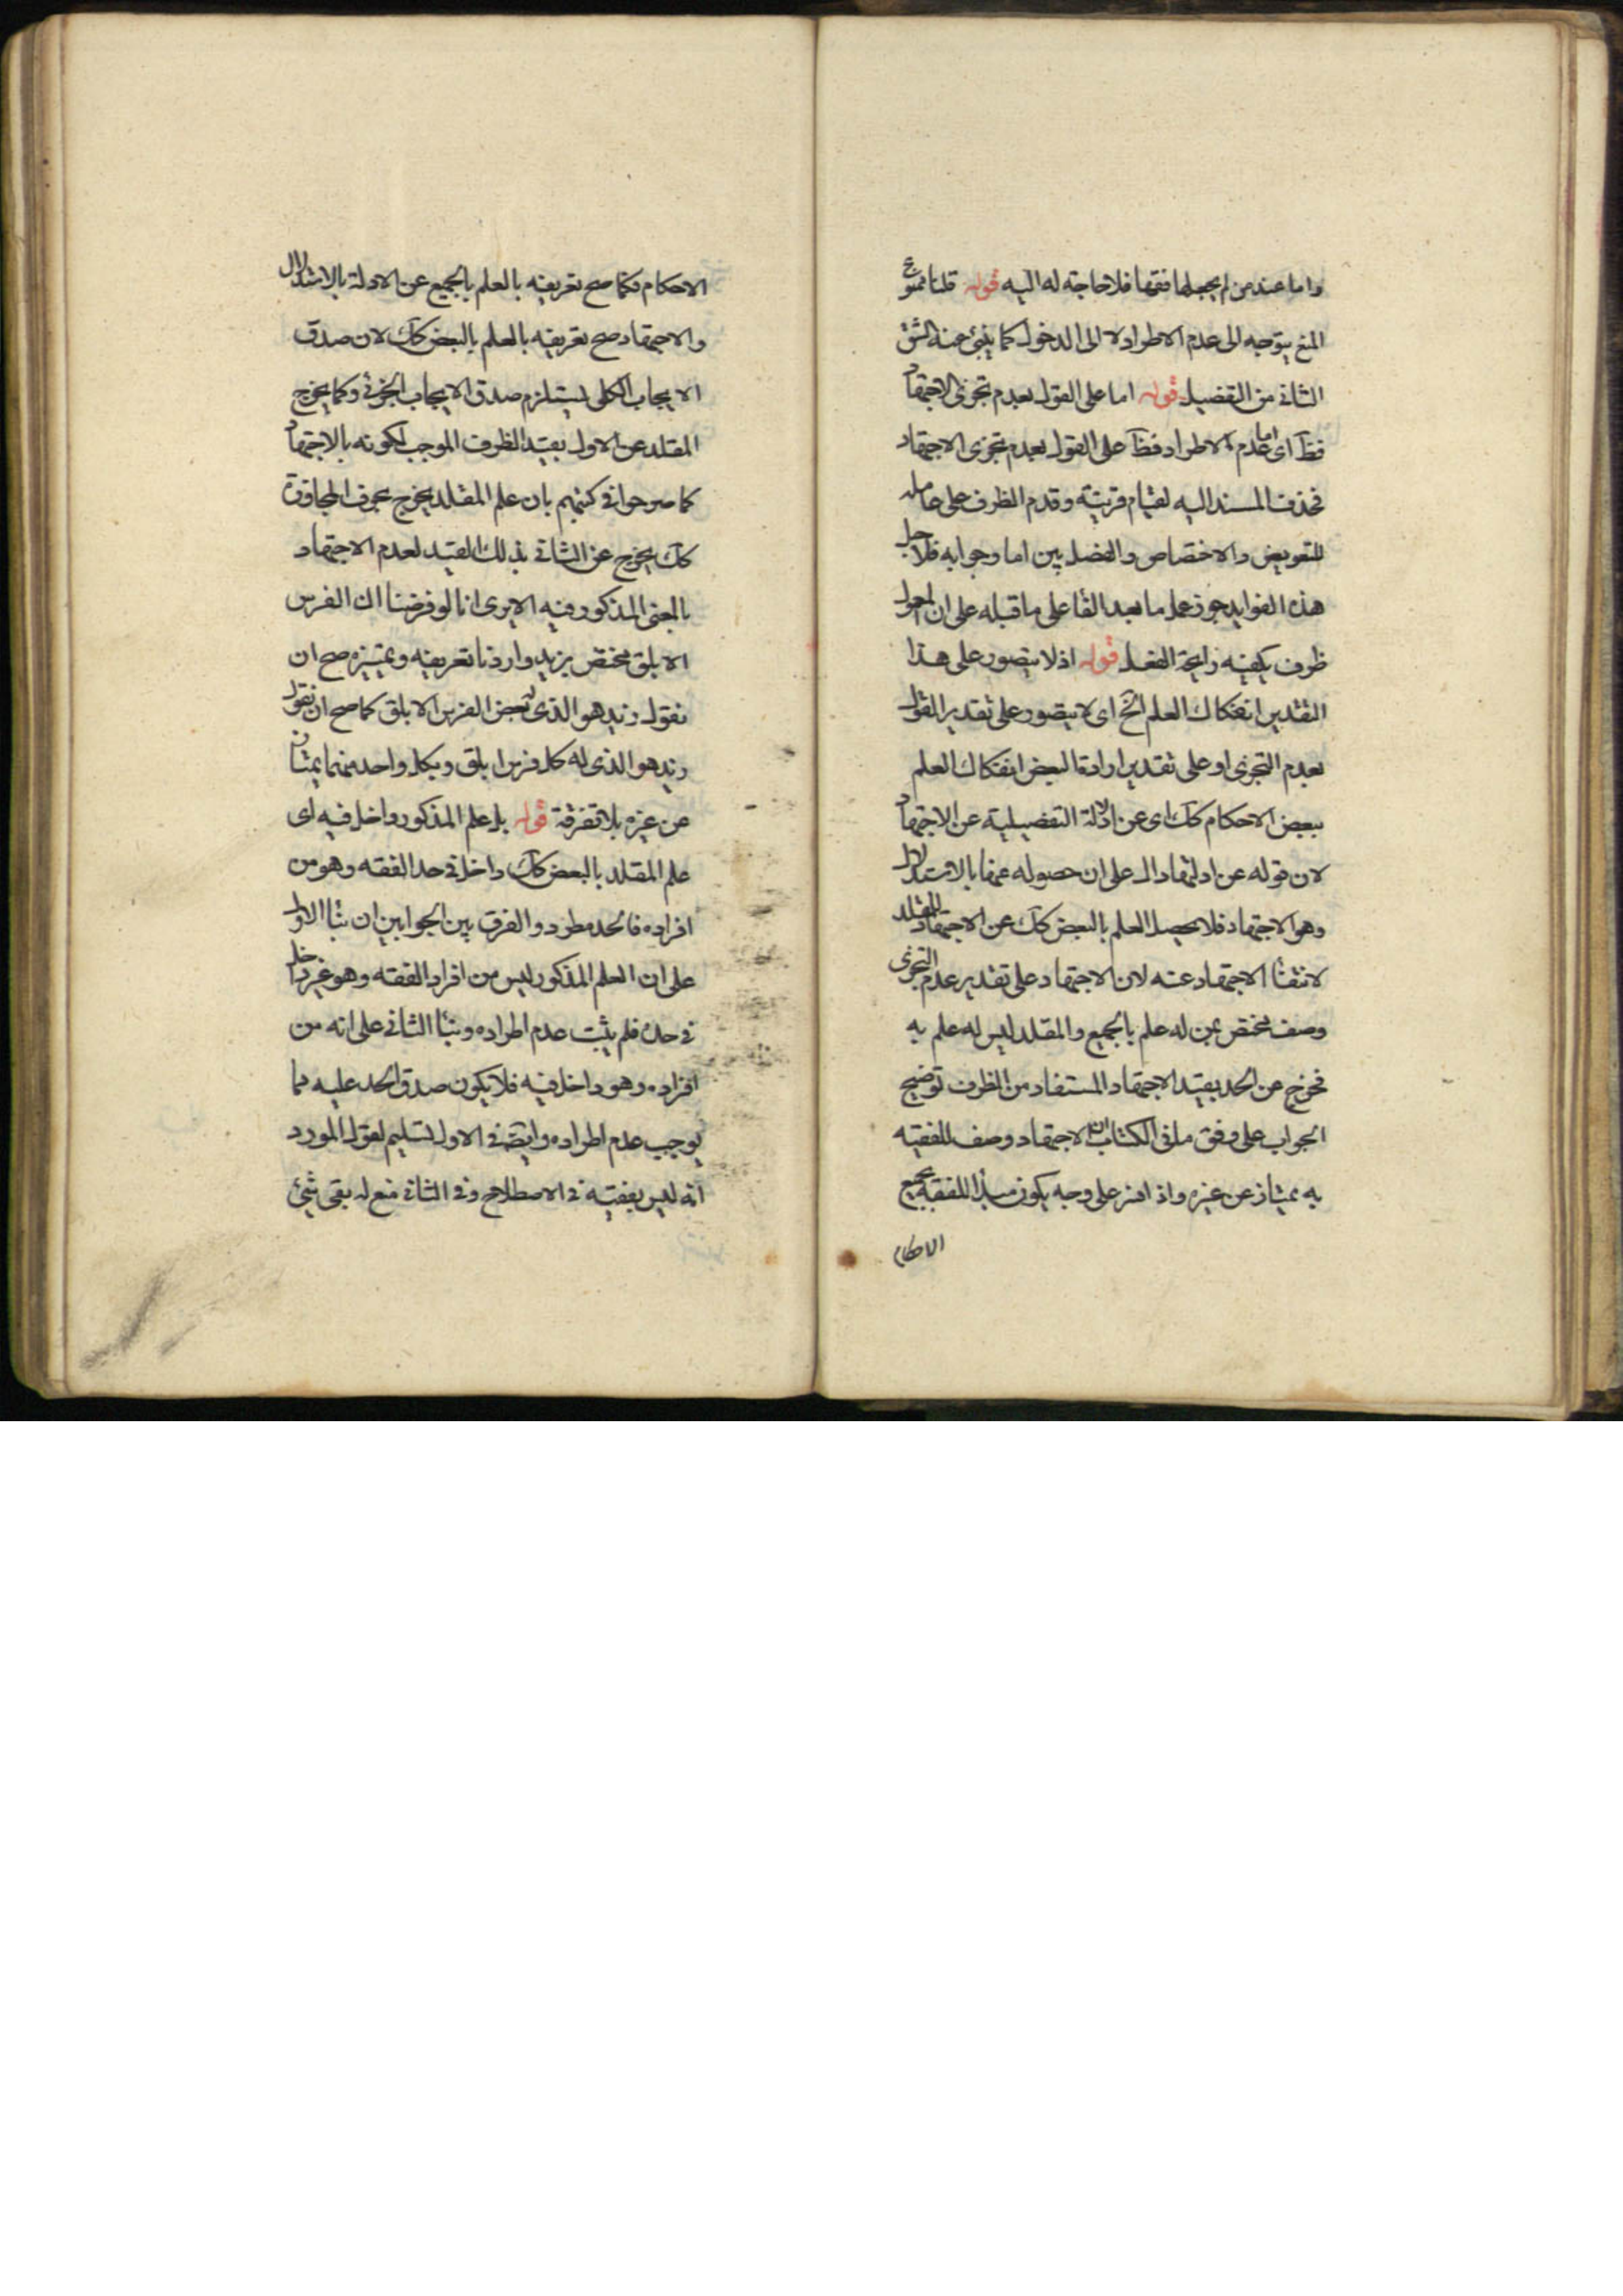 واما عند من لم يجعلها فقها فلا حاجة له اليه قوله قلنا ممنوع
المنع يتوجه الى عدم الاطراد لا الى الدخول كما ينبئ عنه الشق
الثانى من التفصيل قوله اما على القول بعدم تجزى الاجتهاد
فظ اى اما عدم الاطراد فظ على القول بعدم تجزى الاجتهاد
فحذف المسند اليه لقيام قرينة وقدم الظرف على عامله
للتعويض والاختصاص والفصل بين اما وجوابه فلاجل
هذه الفوايد جوز عمل ما بعد الفا على ما قبله على ان المعمول
ظرف يكفيه رايحة الفعل قوله اذ لا يتصور على هذا
التقدير انفكاك العلم الخ اى لا يتصور على تقدير القول
بعدم التجزى او على تقدير ارادة البعض انفكاك العلم
ببعض الاحكام كك اى عن الادلة التفصيلية عن الاجتهاد
لان قوله عن ادلتها دال على ان حصوله عنها بالاستدلال
وهو الاجتهاد فلا يحصل العلم بالبعض كك عن الاجتهاد للمقلد
لانتفا الاجتهاد عنه لان الاجتهاد على تقدير عدم التجزى
وصف مختص بمن له علم بالجميع والمقلد ليس له علم به
فخرج عن الحد بقيد الاجتهاد المستفاد من الظرف توضيح
الجواب على وفق ما فى الكتاب ان الاجتهاد وصف للفقيه
به يمتاز عن غيره واذا على وجه يكون للفقيه بجميع
الاحكام
الاحكام فكما صح تعريفه بالعلم بالجميع عن الادلة بالاستدلال
والاجتهاد صح تعريفه بالعلم بالبعض كك لان صدق
الايجاب الكلى يستلزم صدق الايجاب الجزئى وكما يخرج
المقلد عن الاول بقيد الظرف الموجب لكونه بالاجتهاد
كما صرحوا فى كتبهم بان علم المقلد يخرج بحرف المجاوزة
كك يخرج عن الثانى بذلك القيد لعدم الاجتهاد
بالمعنى المذكور فيه الا يرى انا لو فرضنا ان الفرس
الابلق مختص بزيد واردنا تعريفه وتميزه صح ان
نقول زيد هو الذى له بعض الفرس الابلق كما صح ان نقول
زيد هو الذى له كل فرس ابلق وبكل واحد منهما يمتاز
عن غيره بلا تفرقة قوله بل علم المذكور داخل فيه اى
علم المقلد بالبعض كك داخل فى حد الفقه وهو من
افراده فالحد مطرد والفرق بين الجوابين ان بنا الاول
على ان العلم المذكور ليس من افراد الفقه وهو غير داخل
فى حده فلم يثبت عدم اطراده وبنا الثانى على انه من
افراده وهو داخل فيه فلا يكون صدق الحد عليه مما
يوجب عدم اطراده وايضا فى الاول تسليم لقول المورد
انه ليس بفقيه فى الاصطلاح وفى الثانى منع له بقى شئ